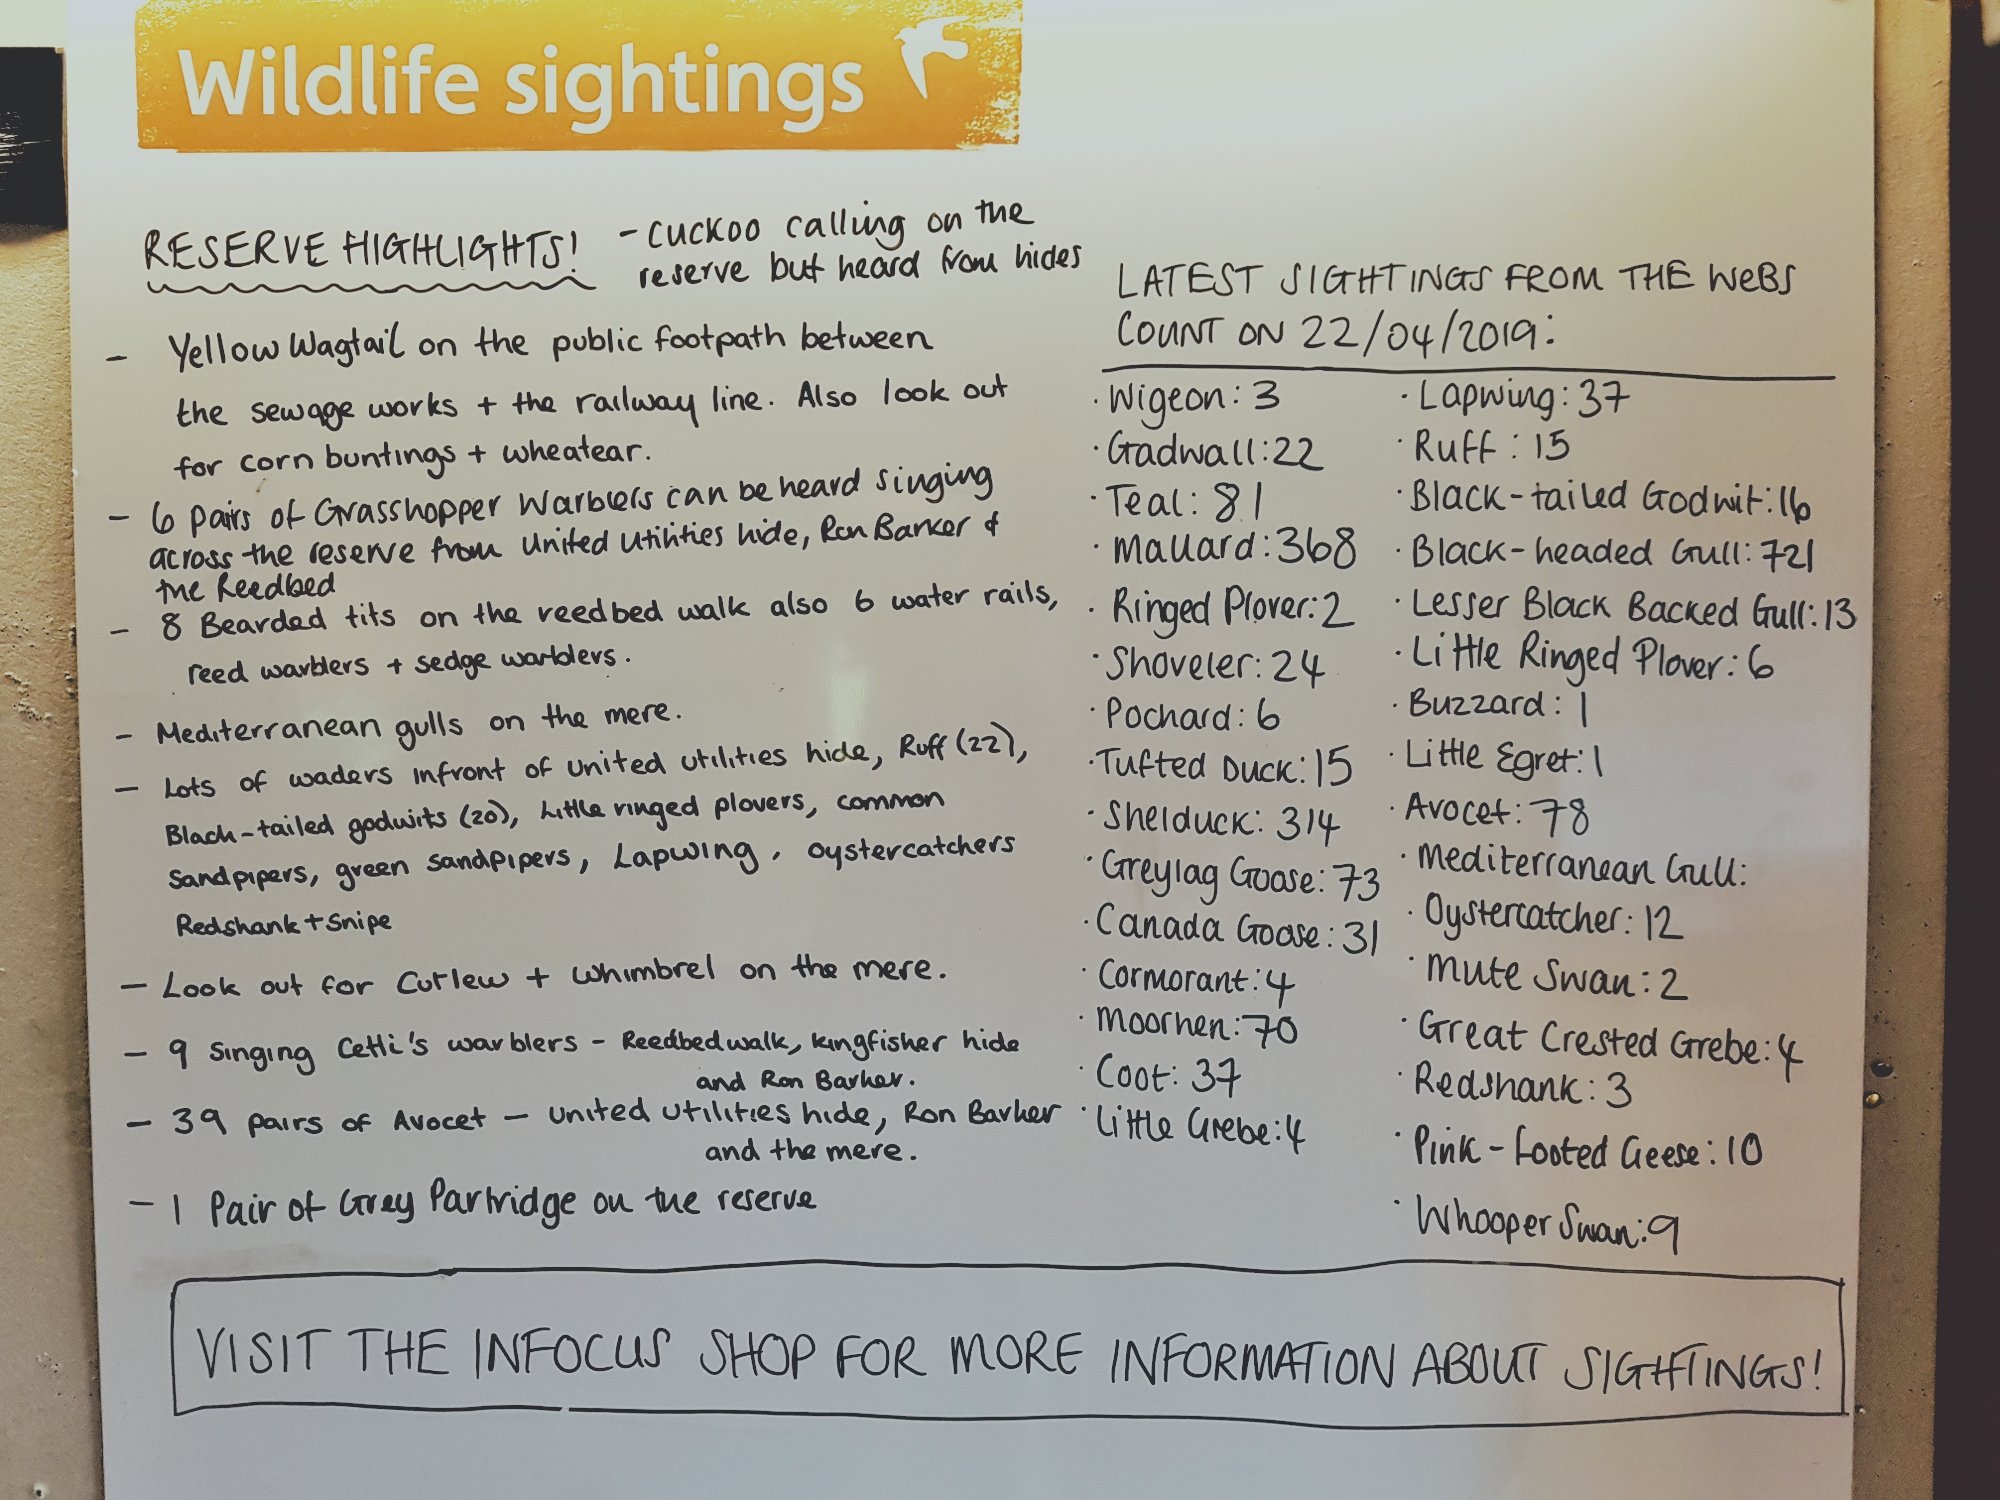 Wildlife sightings
RESERVE HIGHLIGHTS!
- Cuckoo calling on the
reserve but heard from hides
- Yellow Wagtail on the public footpath between
the sewage works + the railway line. Also look out
for corn buntings + wheatear.
- 6 pairs of Grasshopper Warblers can be heard singing
across the reserve from united utilities hide, Ron Barker &
the Reedbed
- 8 Bearded tits on the reedbed walk also 6 water rails,
reed warblers + sedge warblers.
- Mediterranean gulls on the mere.
- Lots of waders infront of united utilities hide, Ruff (22),
Black-tailed godwits (20), Little ringed plovers, common
sandpipers, green sandpipers, Lapwing, oystercatchers
Redshank + snipe
- Look out for Curlew + whimbrel on the mere.
- 9 singing Cetti's warblers - Reedbed walk, kingfisher hide
and Ron Barker.
- 39 pairs of Avocet - united utilities hide, Ron Barker
and the mere.
- 1 Pair of Grey Partridge on the reserve
LATEST SIGHTINGS FROM THE WeBS
COUNT ON 22/04/2019:
· Wigeon: 3
· Gadwall: 22
· Teal: 81
· Mallard: 368
· Ringed Plover: 2
· Shoveler: 24
· Pochard: 6
· Tufted Duck: 15
· Shelduck: 314
· Greylag Goose: 73
· Canada Goose: 31
· Cormorant: 4
· Moorhen: 70
· Coot: 37
· Little Grebe: 4
· Lapwing: 37
· Ruff: 15
· Black-tailed Godwit: 16
· Black-headed Gull: 721
· Lesser Black Backed Gull: 13
· Little Ringed Plover: 6
· Buzzard: 1
· Little Egret: 1
· Avocet: 78
· Mediterranean Gull:
· Oystercatcher: 12
· Mute Swan: 2
· Great Crested Grebe: 4
· Redshank: 3
· Pink-footed Geese: 10
· Whooper Swan: 9
VISIT THE INFOCUS SHOP FOR MORE INFORMATION ABOUT SIGHTINGS!